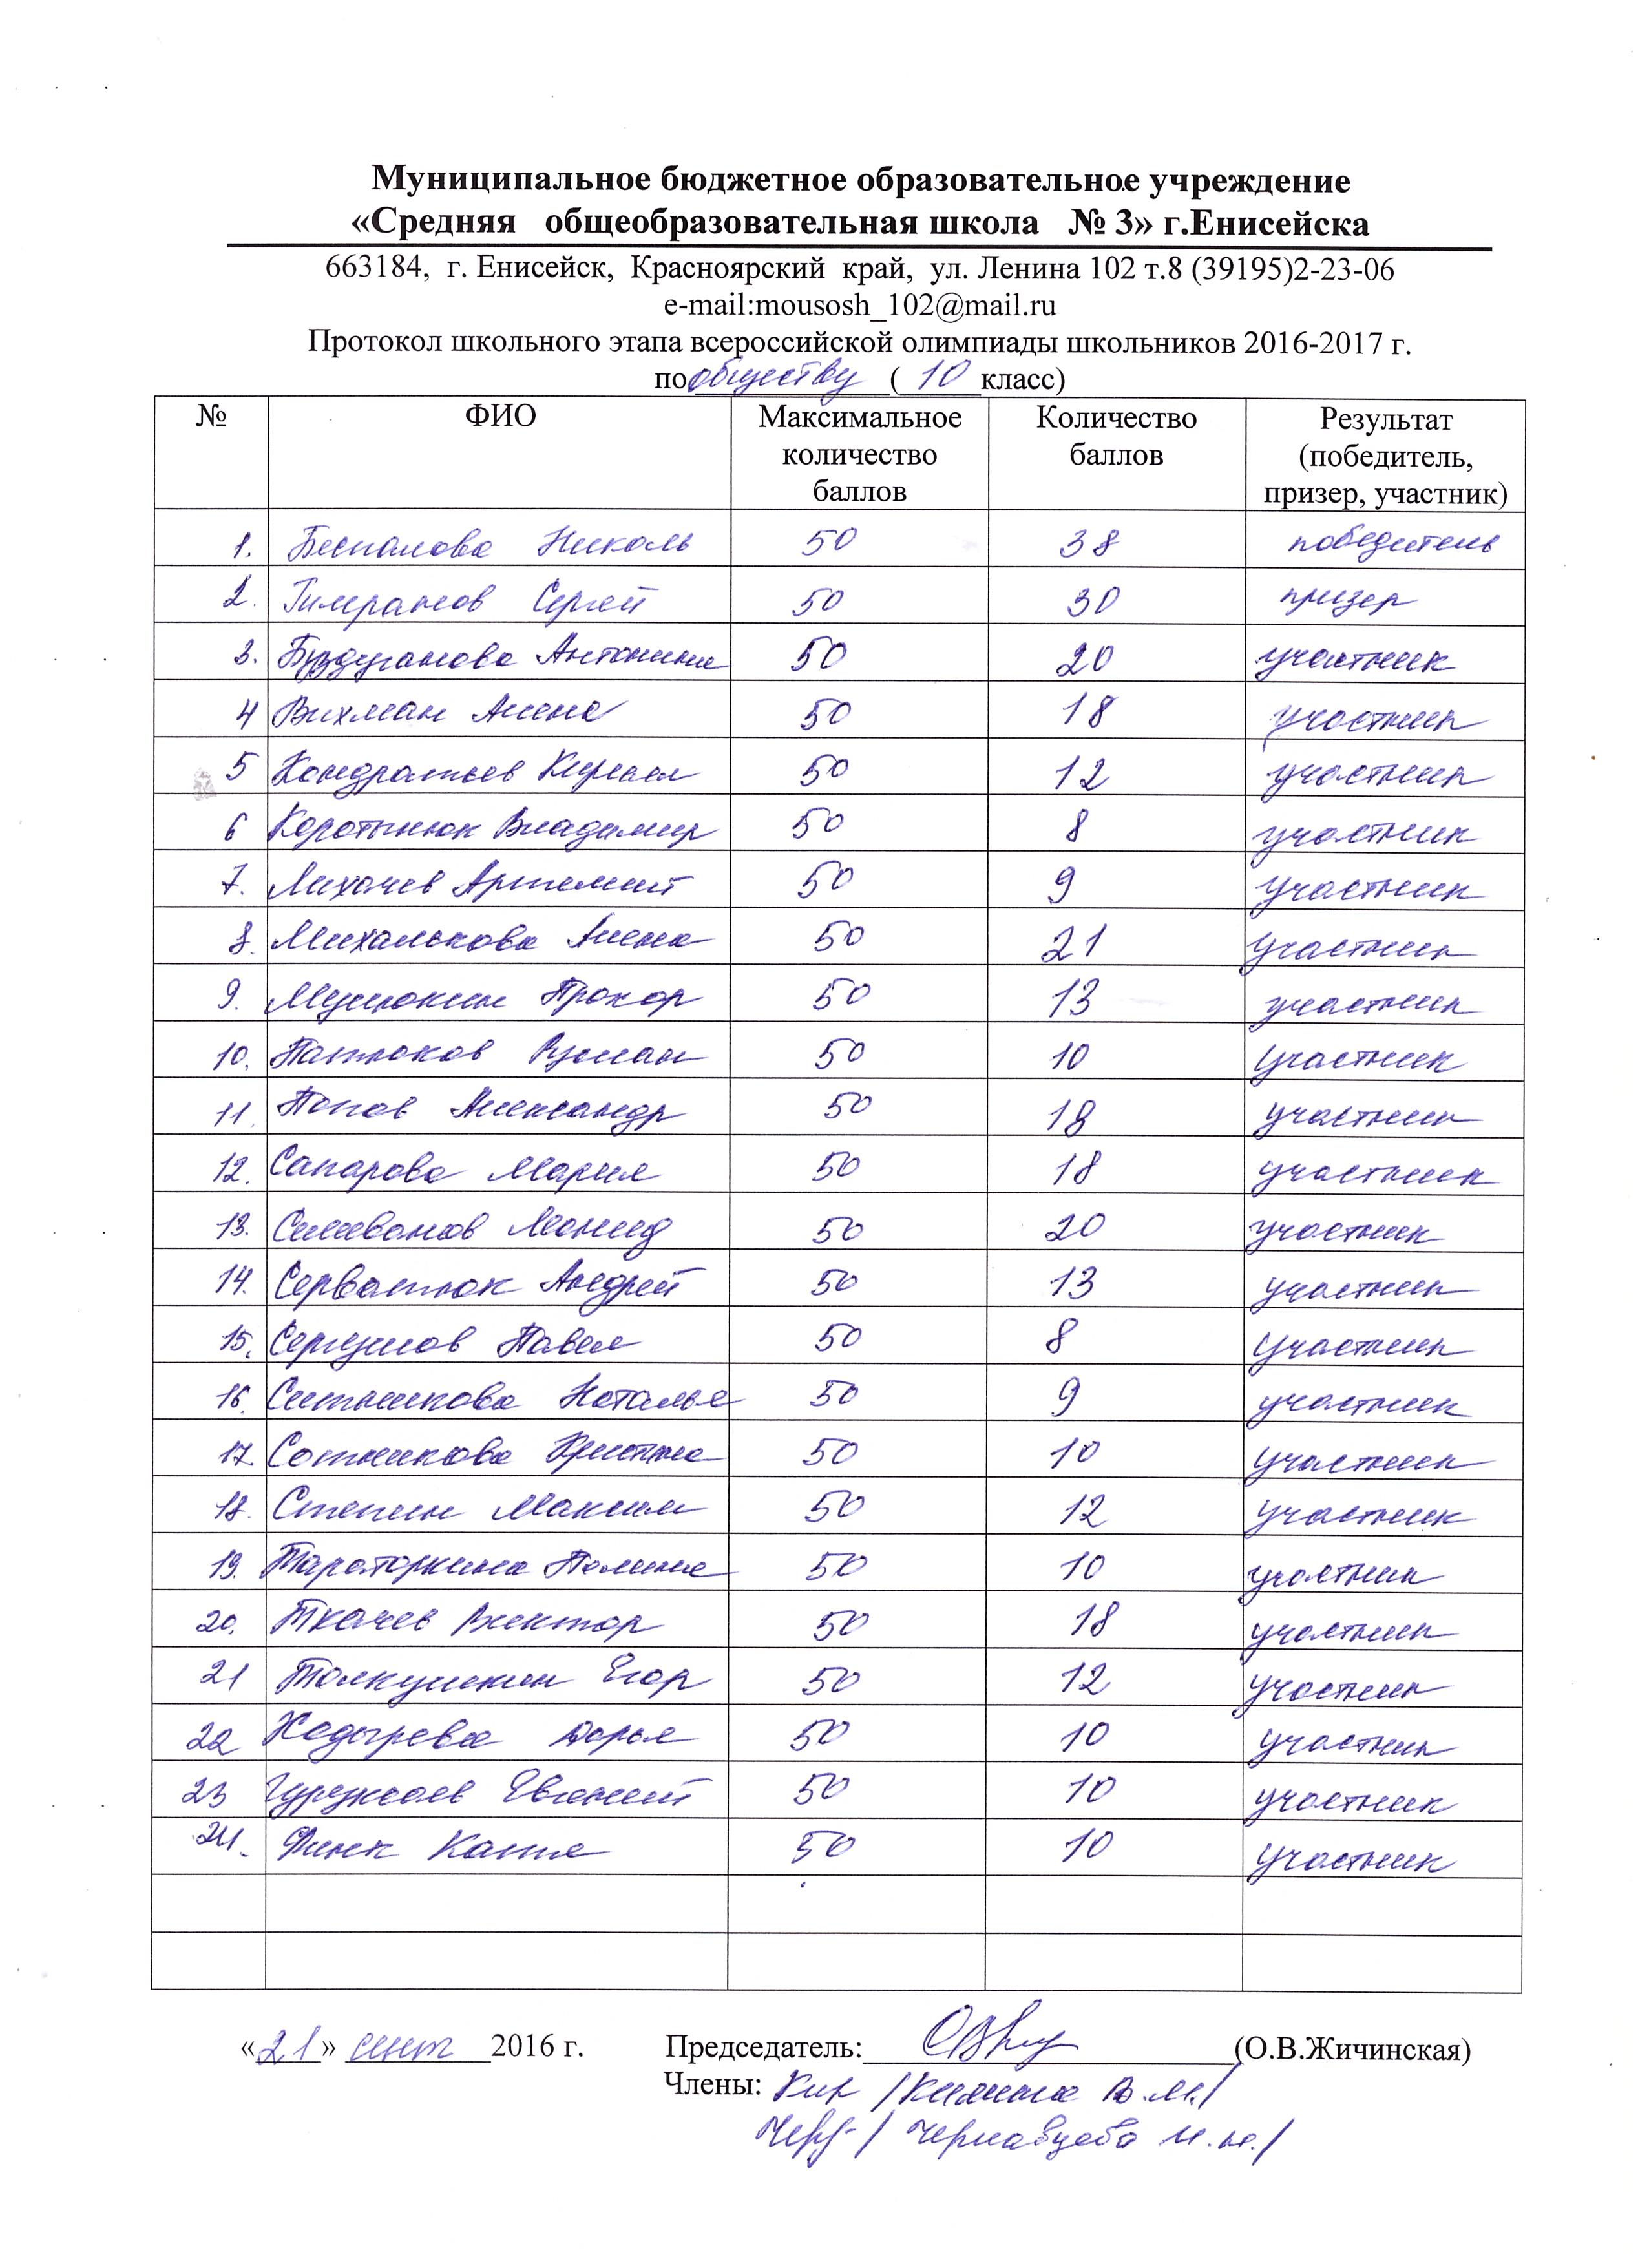 Муниципальное бюджетное образовательное учреждение
«Средняя общеобразовательная школа № 3» г.Енисейска
663184, г. Енисейск, Красноярский край, ул. Ленина 102 т.8 (39195)2-23-06
e-mail:mousosh_102@mail.ru
Протокол школьного этапа всероссийской олимпиады школьников 2016-2017 г.
по обществу ( 10 класс)
№ ФИО Максимальное количество баллов Количество баллов Результат (победитель, призер, участник)
1. Беспалова Николь 50 38 победитель
2. Тимранов Сергей 50 30 призер
3. Буздуганова Антонина 50 20 участник
4 Вихман Алена 50 18 участник
5 Кондратьев Кирилл 50 12 участник
6 Коротынюк Владимир 50 8 участник
7. Лихачев Артемий 50 9 участник
8. Михалькова Алена 50 21 участник
9. Прохор 50 13 участник
10. Патюков Руслан 50 10 участник
11. Попов Александр 50 18 участник
12. Сапарова Мария 50 18 участник
13. Селиванов Леонид 50 20 участник
14. Серватюк Андрей 50 13 участник
15. Павел 50 8 участник
16. Ситникова Наталья 50 9 участник
17. Сотникова Кристина 50 10 участник
18. Степин Максим 50 12 участник
19. Тараторкина Полина 50 10 участник
20. Ткачев Виктор 50 18 участник
21 Толкушкин Егор 50 12 участник
22 Ходырева Дарья 50 10 участник
23 Евгений 50 10 участник
24. Финк Катя 50 10 участник
«21» сент 2016 г. Председатель: (О.В.Жичинская)
Члены: В.М./
/ Чернавцева И.Н./